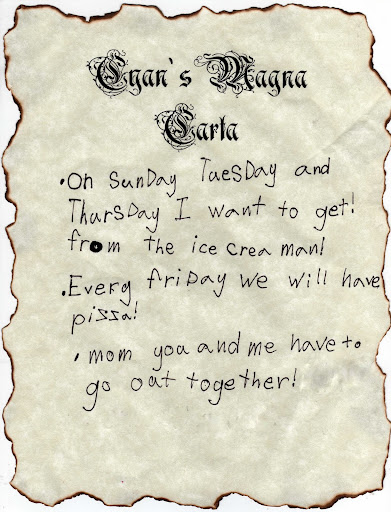 Cyan's Magna
Carta
•On SunDay TuesDay and
ThursDay I want to get!
from the ice crea man!
•Every friDay we will have
pizza!
• mom you and me have to
go out together!